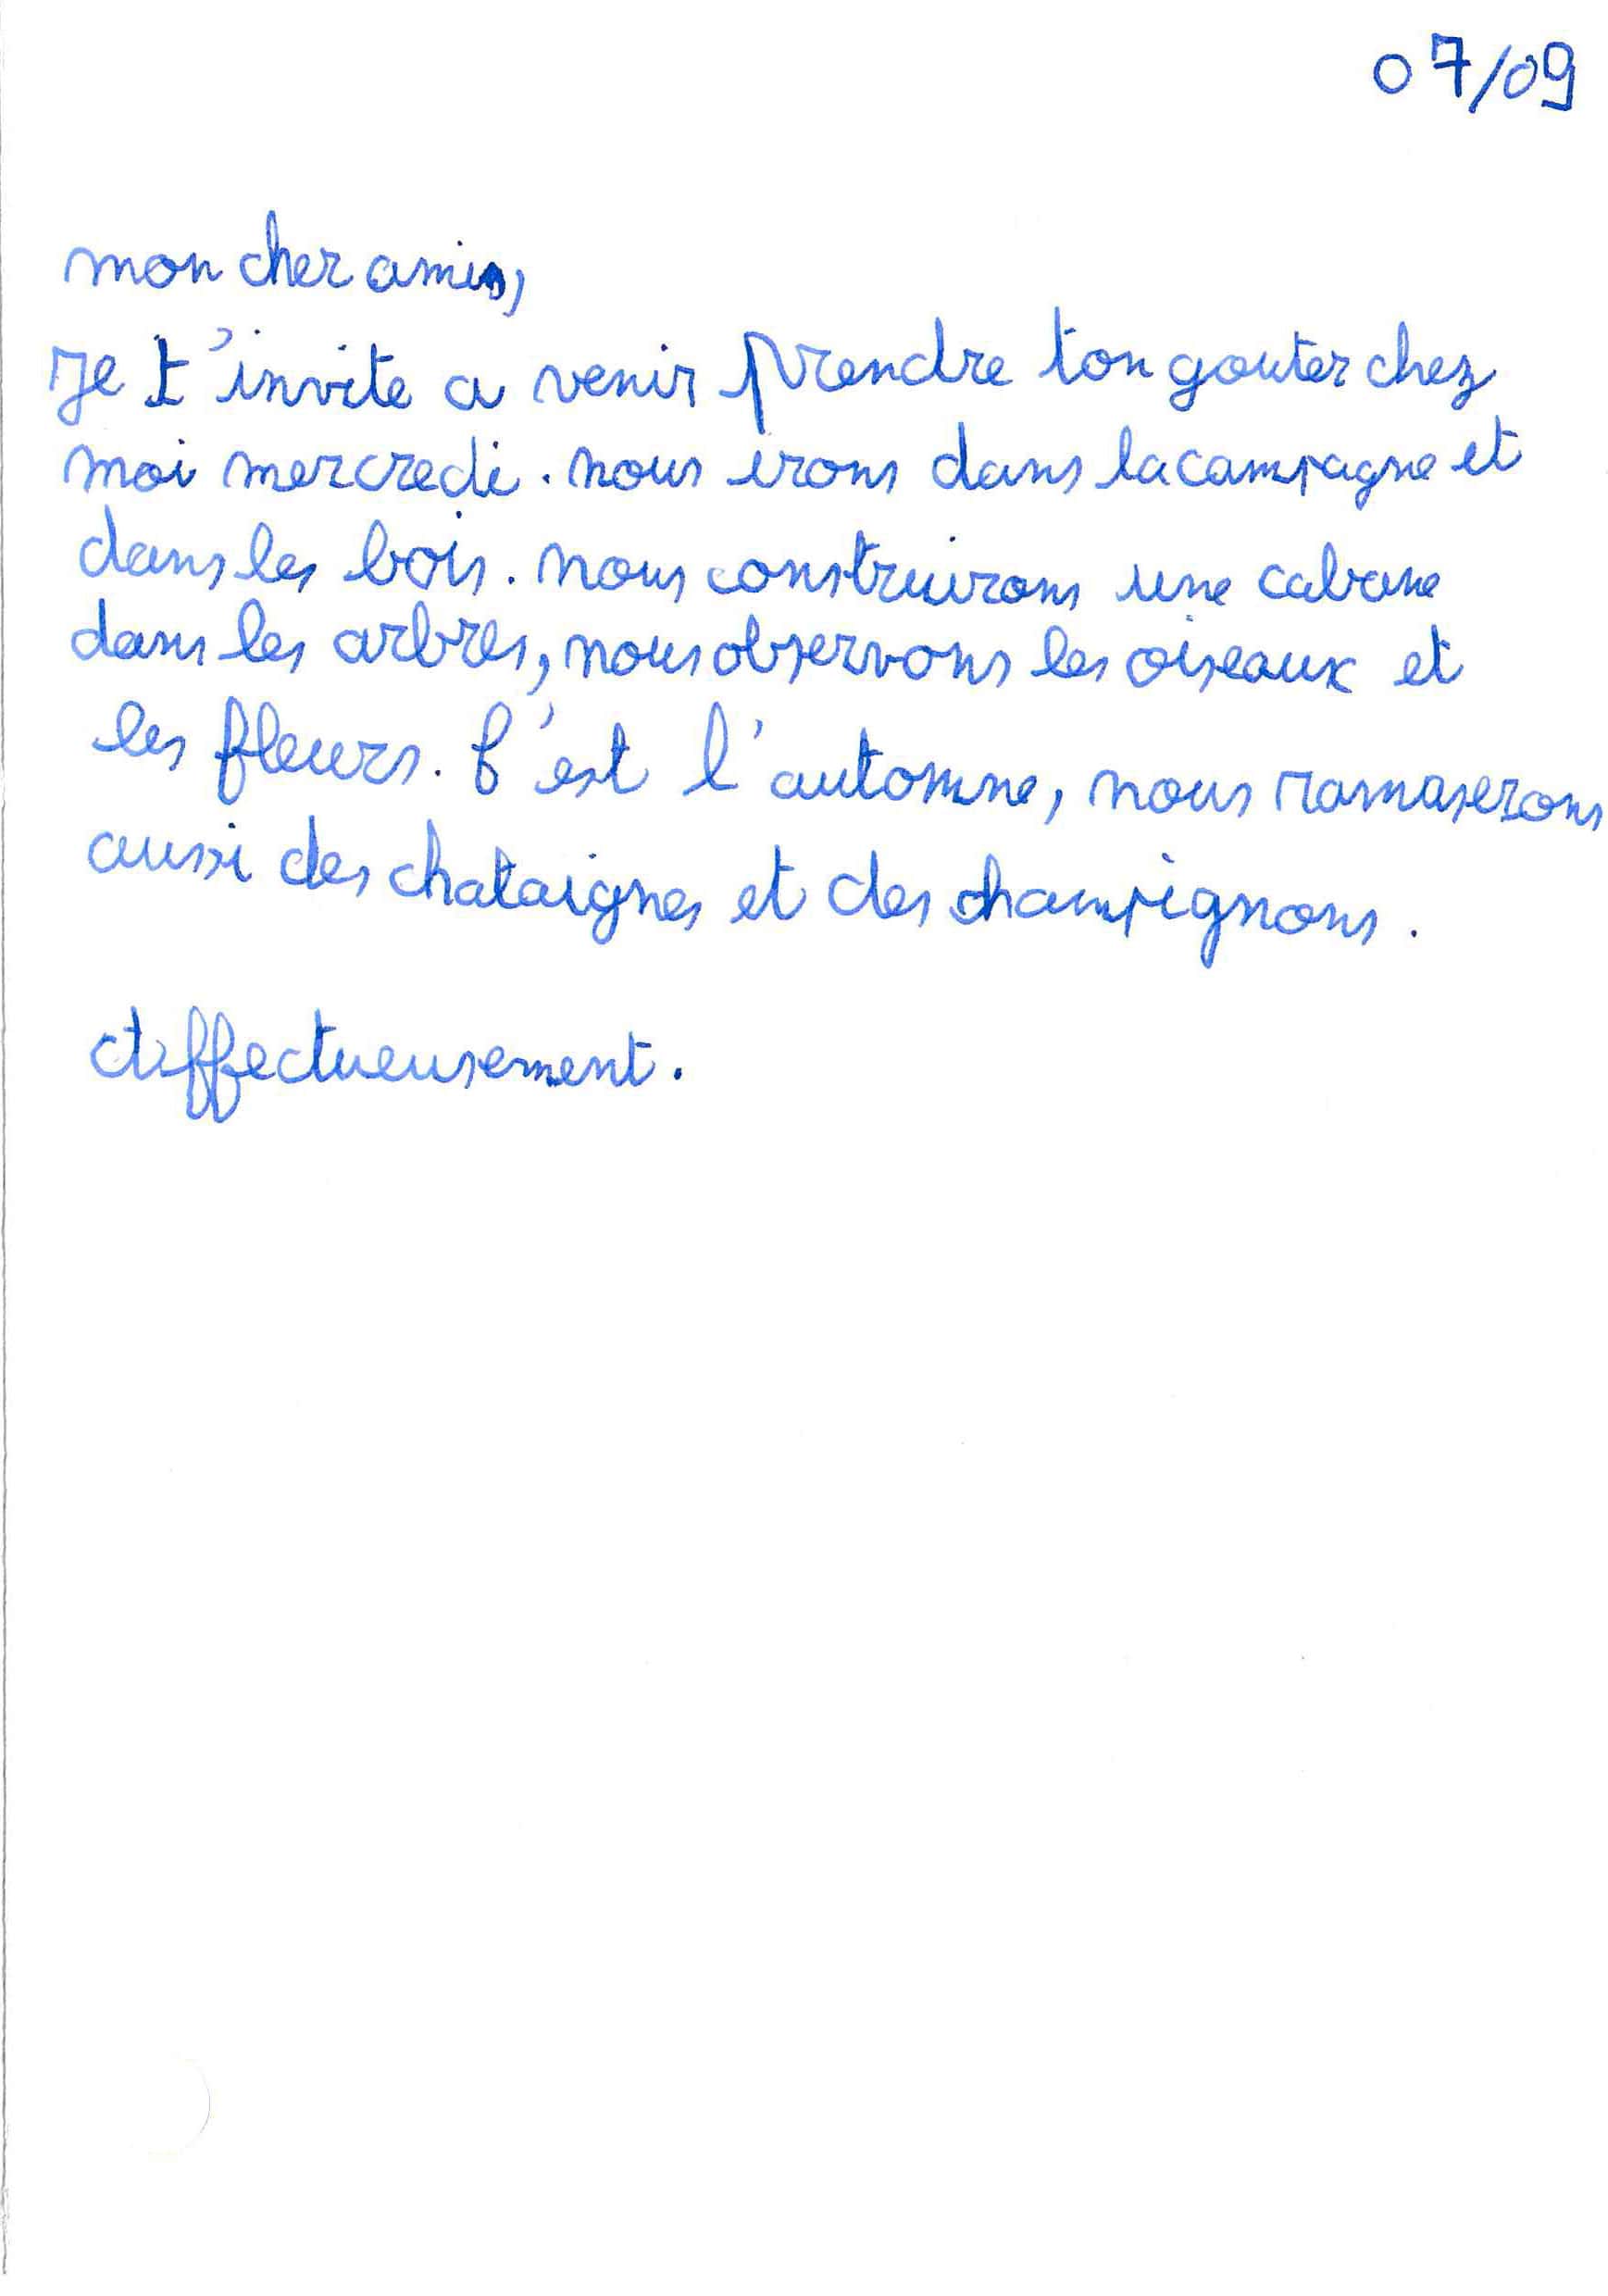 07/09
mon cher amis,
Je t'invite a venir prendre ton gouter chez
moi mercredi. nous irons dans la campagne et
dans les bois. nous construirons une cabane
dans les arbres, nous observons les oiseaux et
les fleurs. C'est l'automne, nous ramaserons
aussi des chataignes et des champignons.
Affectueusement.